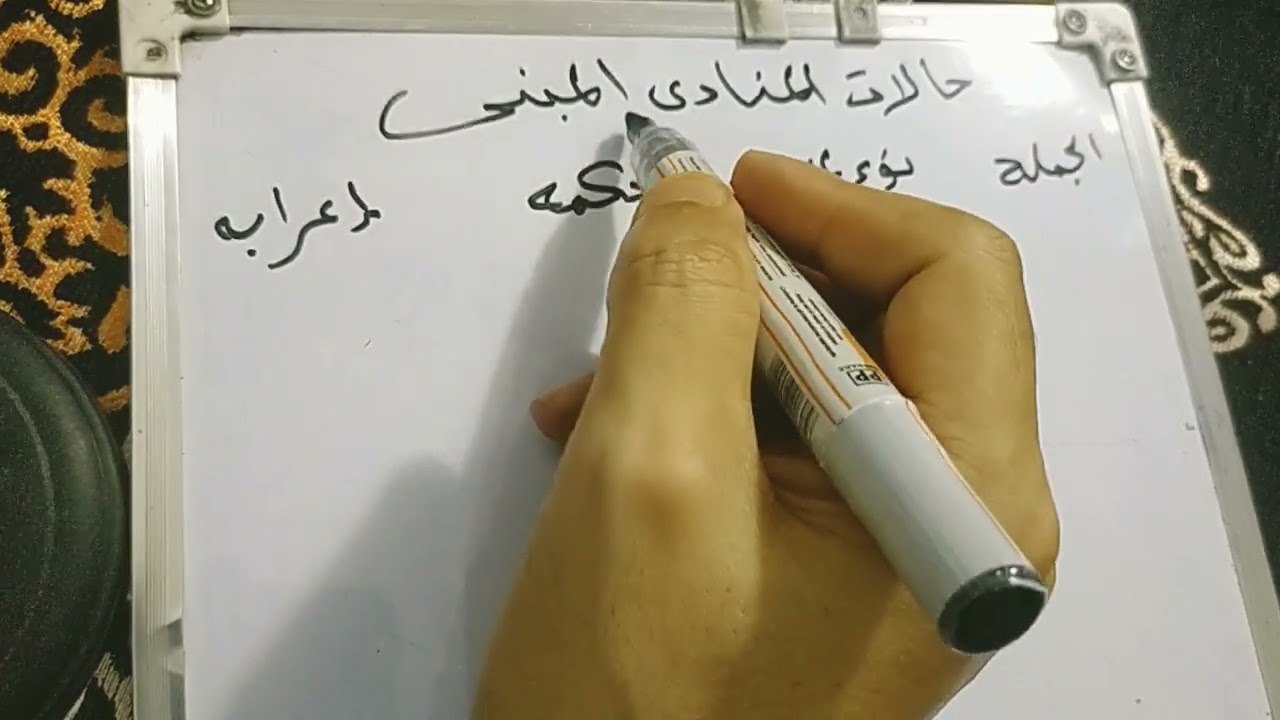 حالات المنادى المبنى
الجملة حكمه إعرابه